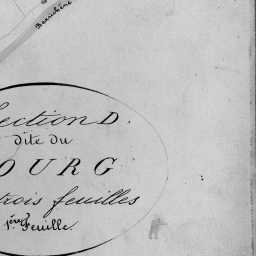 Berrichère
ection D.
dite du
OURG
trois feuilles
1ère Feuille.